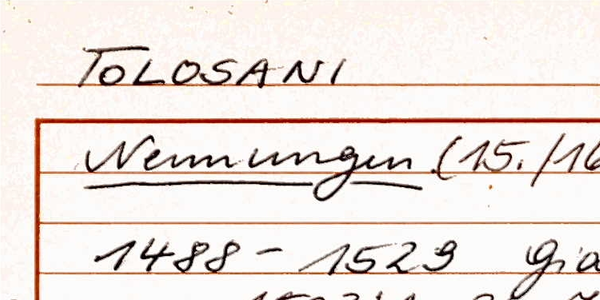 TOLOSANI
Nennungen (15./16
1488 - 1529 Gia